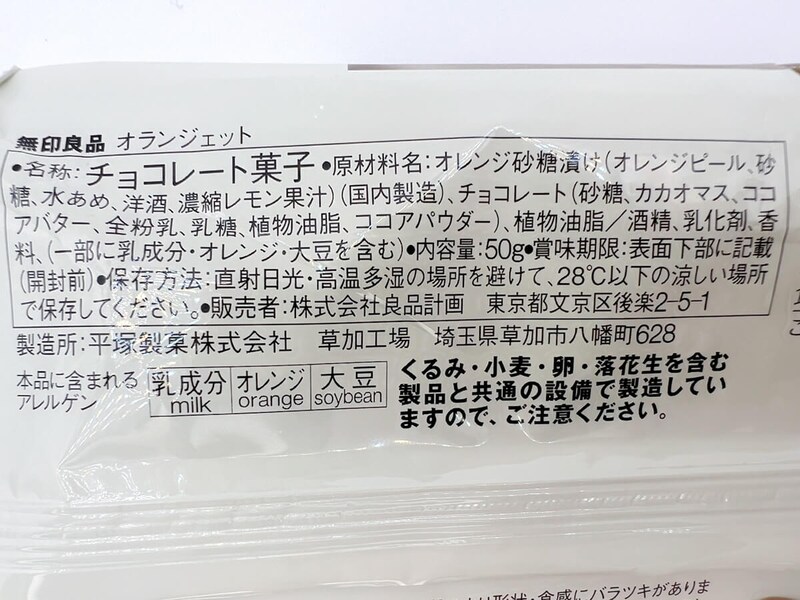 無印良品 オランジェット
•名称:チョコレート菓子•原材料名:オレンジ砂糖漬け(オレンジピール、砂
糖、水あめ、洋酒、濃縮レモン果汁)(国内製造)、チョコレート(砂糖、カカオマス、ココ
アバター、全粉乳、乳糖、植物油脂、ココアパウダー)、植物油脂/酒精、乳化剤、香
料、(一部に乳成分・オレンジ・大豆を含む)•内容量:50g•賞味期限:表面下部に記載
(開封前)•保存方法:直射日光・高温多湿の場所を避けて、28℃以下の涼しい場所
で保存してください。•販売者:株式会社良品計画 東京都文京区後楽2-5-1
製造所:平塚製菓株式会社 草加工場 埼玉県草加市八幡町628
本品に含まれる
アレルゲン
乳成分 オレンジ 大豆
milk orange soybean
くるみ・小麦・卵・落花生を含む
製品と共通の設備で製造してい
ますので、ご注意ください。
形状・食感にバラツキがありま